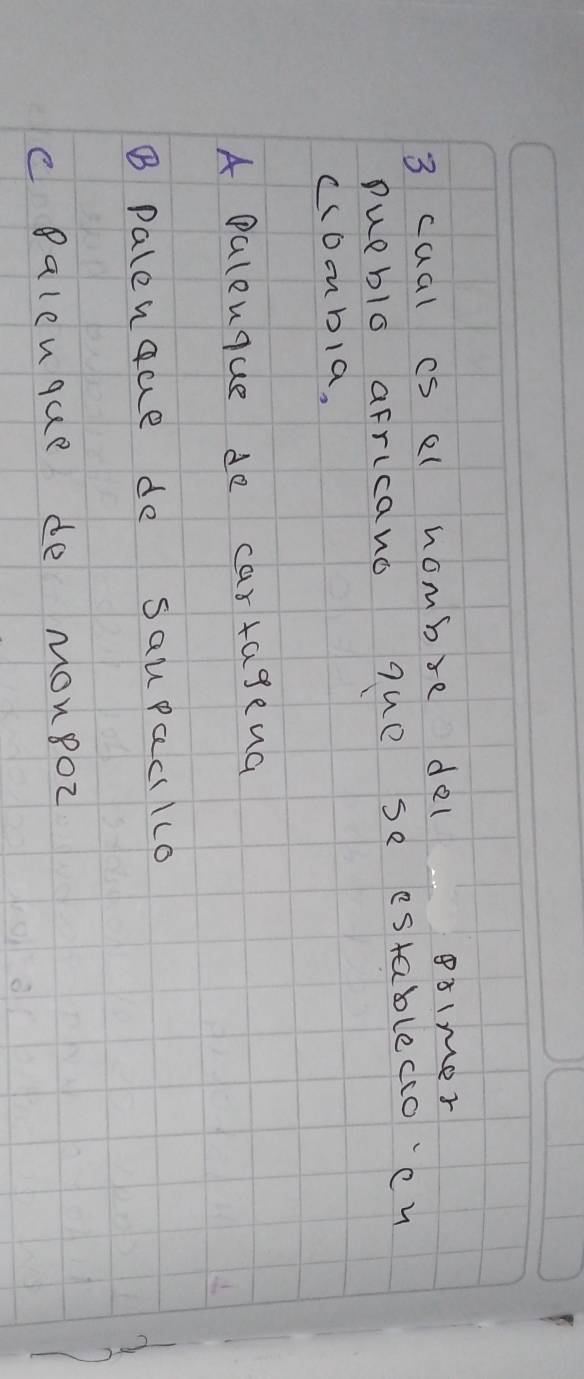 3 cual es el nombre del primer
pueblo africano que se establecio en
Clombia,
A Palenque de cartagena
B Palenque de san pacilio
C palenque de monpoz